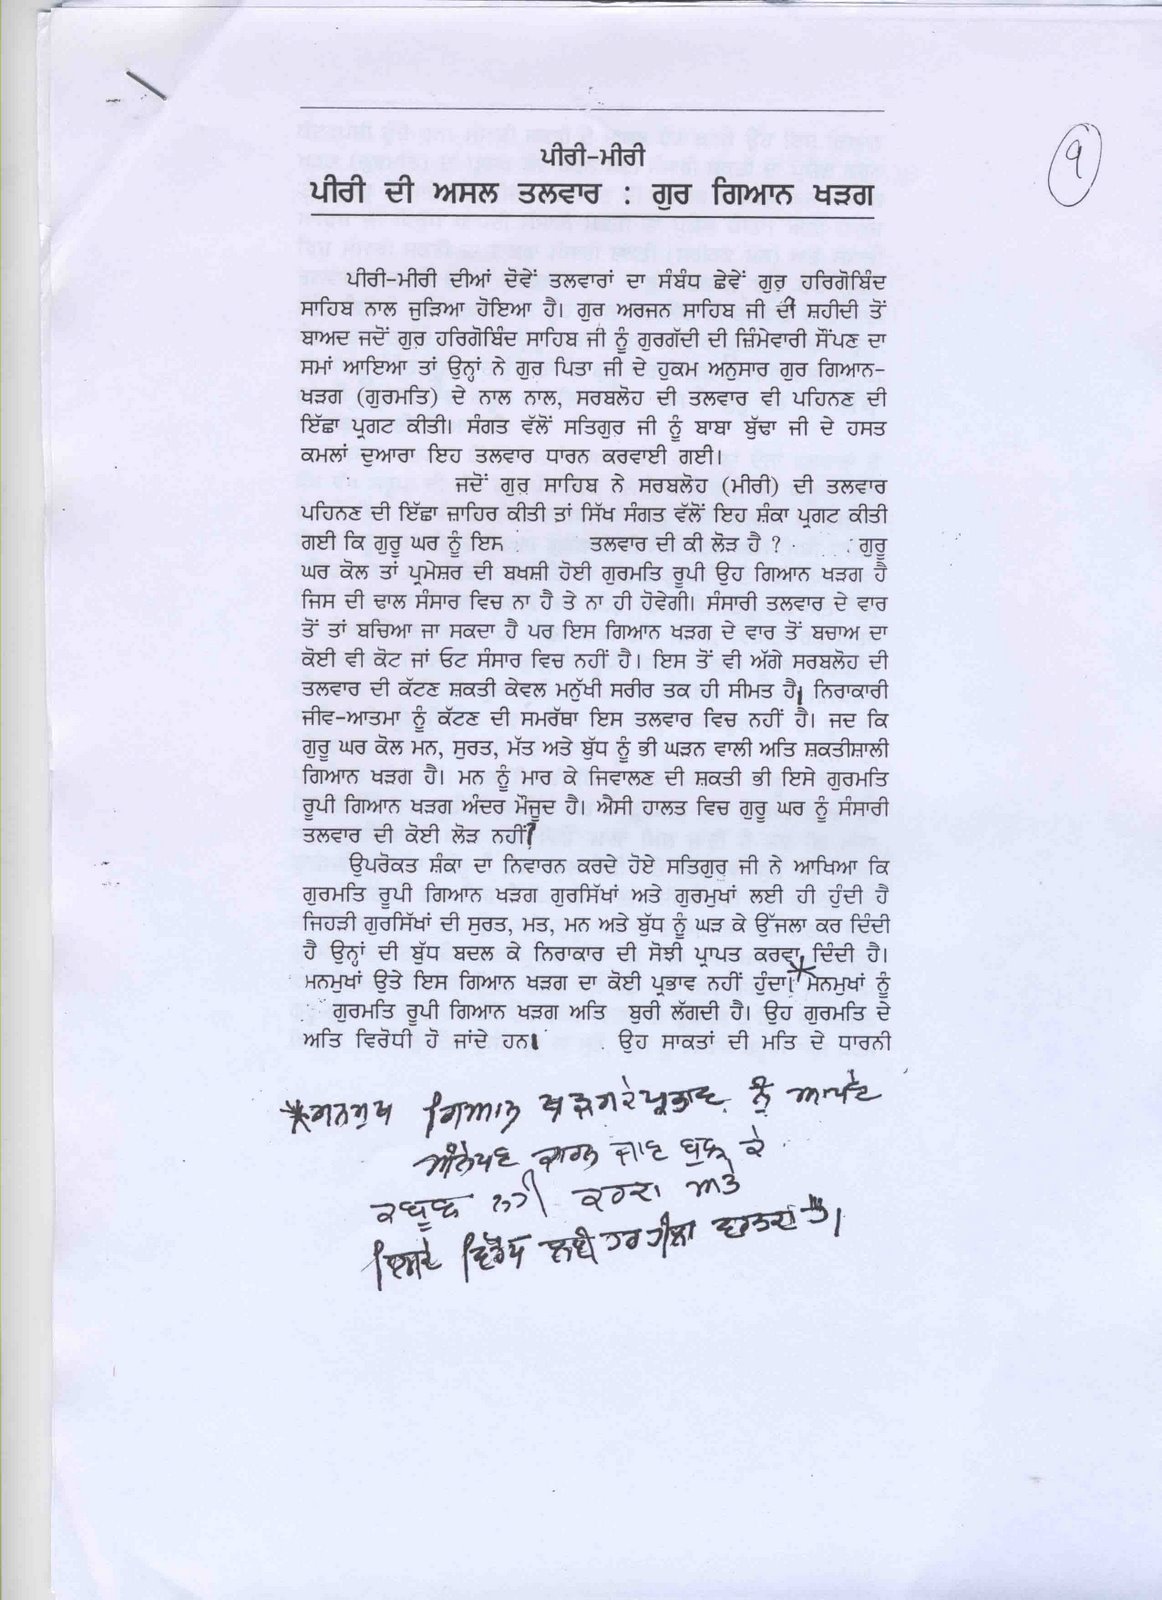 ੧
ਪੀਰੀ-ਮੀਰੀ
ਪੀਰੀ ਦੀ ਅਸਲ ਤਲਵਾਰ : ਗੁਰ ਗਿਆਨ ਖੜਗ
ਪੀਰੀ-ਮੀਰੀ ਦੀਆਂ ਦੋਵੇਂ ਤਲਵਾਰਾਂ ਦਾ ਸੰਬੰਧ ਛੇਵੇਂ ਗੁਰੂ ਹਰਿਗੋਬਿੰਦ
ਸਾਹਿਬ ਨਾਲ ਜੁੜਿਆ ਹੋਇਆ ਹੈ। ਗੁਰ ਅਰਜਨ ਸਾਹਿਬ ਜੀ ਦੀ ਸ਼ਹੀਦੀ ਤੋਂ
ਬਾਅਦ ਜਦੋਂ ਗੁਰੂ ਹਰਿਗੋਬਿੰਦ ਸਾਹਿਬ ਜੀ ਨੂੰ ਗੁਰਗੱਦੀ ਦੀ ਜ਼ਿੰਮੇਵਾਰੀ ਸੌਂਪਣ ਦਾ
ਸਮਾਂ ਆਇਆ ਤਾਂ ਉਨ੍ਹਾਂ ਨੇ ਗੁਰ ਪਿਤਾ ਜੀ ਦੇ ਹੁਕਮ ਅਨੁਸਾਰ ਗੁਰ ਗਿਆਨ-
ਖੜਗ (ਗੁਰਮਤਿ) ਦੇ ਨਾਲ ਨਾਲ, ਸਰਬਲੋਹ ਦੀ ਤਲਵਾਰ ਵੀ ਪਹਿਨਣ ਦੀ
ਇੱਛਾ ਪ੍ਰਗਟ ਕੀਤੀ। ਸੰਗਤ ਵੱਲੋਂ ਸਤਿਗੁਰ ਜੀ ਨੂੰ ਬਾਬਾ ਬੁੱਢਾ ਜੀ ਦੇ ਹਸਤ
ਕਮਲਾਂ ਦੁਆਰਾ ਇਹ ਤਲਵਾਰ ਧਾਰਨ ਕਰਵਾਈ ਗਈ।
ਜਦੋਂ ਗੁਰੂ ਸਾਹਿਬ ਨੇ ਸਰਬਲੋਹ (ਮੀਰੀ) ਦੀ ਤਲਵਾਰ
ਪਹਿਨਣ ਦੀ ਇੱਛਾ ਜ਼ਾਹਿਰ ਕੀਤੀ ਤਾਂ ਸਿੱਖ ਸੰਗਤ ਵੱਲੋਂ ਇਹ ਸ਼ੰਕਾ ਪ੍ਰਗਟ ਕੀਤੀ
ਗਈ ਕਿ ਗੁਰੂ ਘਰ ਨੂੰ ਇਸ ਤਲਵਾਰ ਦੀ ਕੀ ਲੋੜ ਹੈ ? ਗੁਰੂ
ਘਰ ਕੋਲ ਤਾਂ ਪ੍ਰਮੇਸ਼ਰ ਦੀ ਬਖਸ਼ੀ ਹੋਈ ਗੁਰਮਤਿ ਰੂਪੀ ਉਹ ਗਿਆਨ ਖੜਗ ਹੈ
ਜਿਸ ਦੀ ਢਾਲ ਸੰਸਾਰ ਵਿਚ ਨਾ ਹੈ ਤੇ ਨਾ ਹੀ ਹੋਵੇਗੀ। ਸੰਸਾਰੀ ਤਲਵਾਰ ਦੇ ਵਾਰ
ਤੋਂ ਤਾਂ ਬਚਿਆ ਜਾ ਸਕਦਾ ਹੈ ਪਰ ਇਸ ਗਿਆਨ ਖੜਗ ਦੇ ਵਾਰ ਤੋਂ ਬਚਾਅ ਦਾ
ਕੋਈ ਵੀ ਕੋਟ ਜਾਂ ਓਟ ਸੰਸਾਰ ਵਿਚ ਨਹੀਂ ਹੈ। ਇਸ ਤੋਂ ਵੀ ਅੱਗੇ ਸਰਬਲੋਹ ਦੀ
ਤਲਵਾਰ ਦੀ ਕੱਟਣ ਸ਼ਕਤੀ ਕੇਵਲ ਮਨੁੱਖੀ ਸਰੀਰ ਤਕ ਹੀ ਸੀਮਤ ਹੈ। ਨਿਰਾਕਾਰੀ
ਜੀਵ-ਆਤਮਾ ਨੂੰ ਕੱਟਣ ਦੀ ਸਮਰੱਥਾ ਇਸ ਤਲਵਾਰ ਵਿਚ ਨਹੀਂ ਹੈ। ਜਦ ਕਿ
ਗੁਰੂ ਘਰ ਕੋਲ ਮਨ, ਸੁਰਤ, ਮੱਤ ਅਤੇ ਬੁੱਧ ਨੂੰ ਭੀ ਘੜਨ ਵਾਲੀ ਅਤਿ ਸ਼ਕਤੀਸ਼ਾਲੀ
ਗਿਆਨ ਖੜਗ ਹੈ। ਮਨ ਨੂੰ ਮਾਰ ਕੇ ਜਿਵਾਲਣ ਦੀ ਸ਼ਕਤੀ ਭੀ ਇਸੇ ਗੁਰਮਤਿ
ਰੂਪੀ ਗਿਆਨ ਖੜਗ ਅੰਦਰ ਮੌਜੂਦ ਹੈ। ਐਸੀ ਹਾਲਤ ਵਿਚ ਗੁਰੂ ਘਰ ਨੂੰ ਸੰਸਾਰੀ
ਤਲਵਾਰ ਦੀ ਕੋਈ ਲੋੜ ਨਹੀਂ?
ਉਪਰੋਕਤ ਸ਼ੰਕਾ ਦਾ ਨਿਵਾਰਨ ਕਰਦੇ ਹੋਏ ਸਤਿਗੁਰੂ ਜੀ ਨੇ ਆਖਿਆ ਕਿ
ਗੁਰਮਤਿ ਰੂਪੀ ਗਿਆਨ ਖੜਗ ਗੁਰਸਿੱਖਾਂ ਅਤੇ ਗੁਰਮੁਖਾਂ ਲਈ ਹੀ ਹੁੰਦੀ ਹੈ
ਜਿਹੜੀ ਗੁਰਸਿੱਖਾਂ ਦੀ ਸੁਰਤ, ਮਤ, ਮਨ ਅਤੇ ਬੁੱਧ ਨੂੰ ਘੜ ਕੇ ਉੱਜਲਾ ਕਰ ਦਿੰਦੀ
ਹੈ ਉਨ੍ਹਾਂ ਦੀ ਬੁੱਧ ਬਦਲ ਕੇ ਨਿਰਾਕਾਰ ਦੀ ਸੋਝੀ ਪ੍ਰਾਪਤ ਕਰਵਾ ਦਿੰਦੀ ਹੈ।
ਮਨਮੁਖਾਂ ਉਤੇ ਇਸ ਗਿਆਨ ਖੜਗ ਦਾ ਕੋਈ ਪ੍ਰਭਾਵ ਨਹੀਂ ਹੁੰਦਾ।* ਮਨਮੁਖਾਂ ਨੂੰ
ਗੁਰਮਤਿ ਰੂਪੀ ਗਿਆਨ ਖੜਗ ਅਤਿ ਬੁਰੀ ਲੱਗਦੀ ਹੈ। ਉਹ ਗੁਰਮਤਿ ਦੇ
ਅਤਿ ਵਿਰੋਧੀ ਹੋ ਜਾਂਦੇ ਹਨ। ਉਹ ਸਾਕਤਾਂ ਦੀ ਮਤਿ ਦੇ ਧਾਰਨੀ
*ਮਨਮੁਖ ਗਿਆਨ ਖੜਗ ਦੇ ਪ੍ਰਭਾਵ ਨੂੰ ਆਪਣੇ
ਅੰਨੇਪਣ ਕਾਰਨ ਜਾਣ ਬੁਝ ਕੇ
ਕਬੂਲ ਨਹੀਂ ਕਰਦਾ ਅਤੇ
ਇਸਦੇ ਵਿਰੋਧ ਲਈ ਹਰ ਹੀਲਾ ਵਰਤਦਾ ਹੈ।